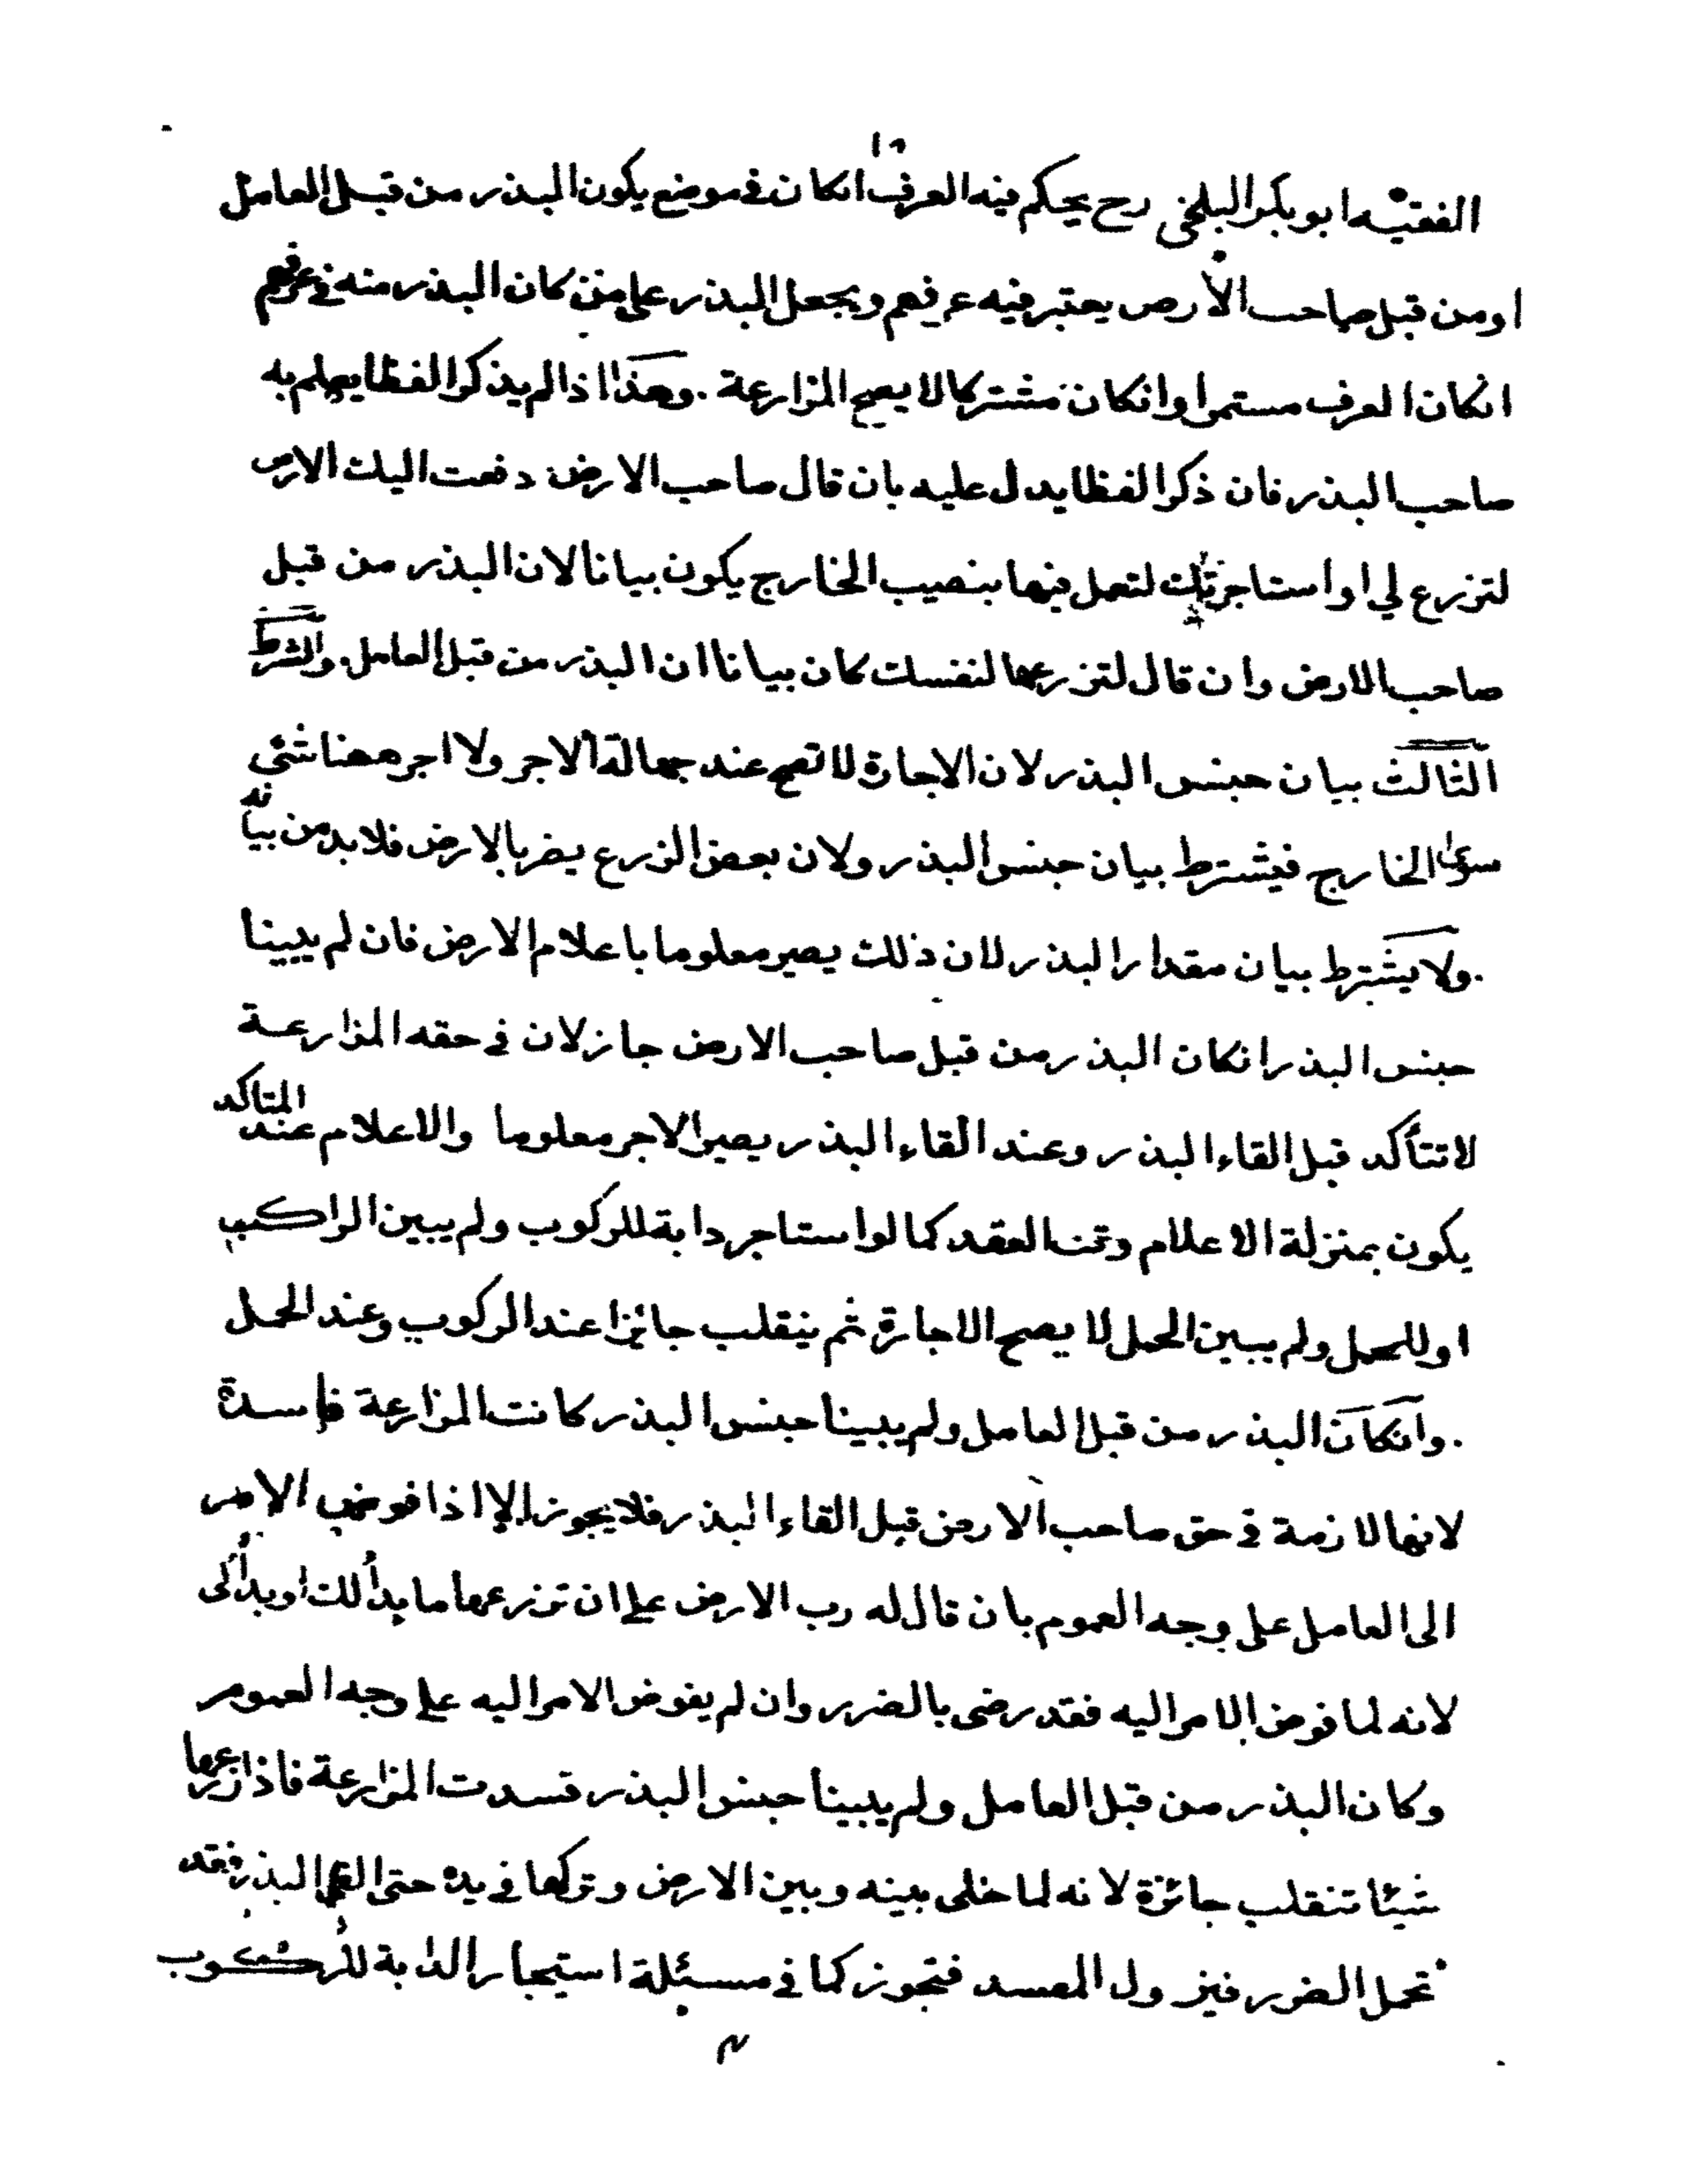 ١٥
الفقيه ابو بكر البلخى رح يحكم فيه العرف انكان فى موضع يكون البذر من قبل العامل
او من قبل صاحب الأرض يعتبر فيه عرفهم ويجعل البذر على من كان البذر منه فى عرفهم
انكان العرف مستمرا وانكان مشتركا لا يصح المزارعة . وهذا اذا لم يذكر الفظا يعلم به
صاحب البذر فان ذكر الفظا يدل عليه بان قال صاحب الارض دفعت اليك الارض
لتزرع لي او استاجرتك لتعمل فيها بنصيب الخارج يكون بيانا لان البذر من قبل
صاحب الارض وان قال لتزرعها لنفسك كان بيانا ان البذر من قبل العامل . والشرط
الثالث بيان جنس البذر لان الاجارة لا تصح عند جهالة الاجر ولا اجر ههنا شئى
سوى الخارج فيشترط بيان جنس البذر ولان بعض الزرع يضر بالارض فلا بد من بيانه
. ولا يشترط بيان مقدار البذر لان ذلك يصير معلوما باعلام الارض فان لم يبينا
جنس البذر انكان البذر من قبل صاحب الارض جاز لان فى حقه المزارعة
لا تتأكد قبل القاء البذر وعند القاء البذر يصير الاجر معلوما والاعلام عند المتاكد
يكون بمنزلة الاعلام وقت العقد كما لو استاجر دابة للركوب ولم يبين الراكب
او للحمل ولم يبين الحمل لا يصح الاجارة ثم ينقلب جائزا عند الركوب وعند الحمل
. وانكان البذر من قبل العامل ولم يبينا جنس البذر كانت المزارعة فاسدة
لانها لازمة فى حق صاحب الارض قبل القاء البذر فلا يجوز الا اذا فوض الامر
الى العامل على وجه العموم بان قال له رب الارض على ان تزرعها ما بدأ لك او بدأ لى
لانه لما فوض الامر اليه فقد رضى بالضرر وان لم يفوض الامر اليه على وجه العموم
وكان البذر من قبل العامل ولم يبينا جنس البذر فسدت المزارعة فاذا زرعها
شيئا تنقلب جائزة لانه لما خلى بينه وبين الارض وتركها فى يده حتى القى البذر فقد
تحمل الضرر فيزول المفسد فتجوز كما فى مسئلة استيجار الدابة للركوب